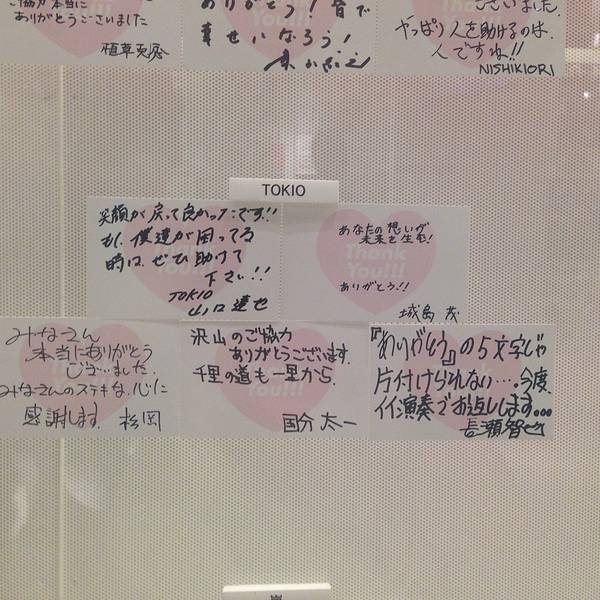 ご協力本当に
ありがとうございました
植草
ありがとう!音で
幸せになろう!
ございました。
やっぱり人を助けるのは、
人ですね!!
NISHIKIORI
TOKIO
笑顔が戻って良かったです!!
もし、僕達が困ってる
時は、ぜひ助けて
下さい!!
TOKIO
山口達也
あなたの想いが
未来を生む!
Thank
You!!!
ありがとう!!
城島茂
みなさん
本当にありがとう
ございました。
みなさんのステキな心に
感謝します。 松岡
沢山のご協力
ありがとうございます。
千里の道も一里から。
国分太一
『ありがとう』の5文字じゃ
片付けられない…。今度、
イイ演奏でお返しします…
長瀬智也
嵐